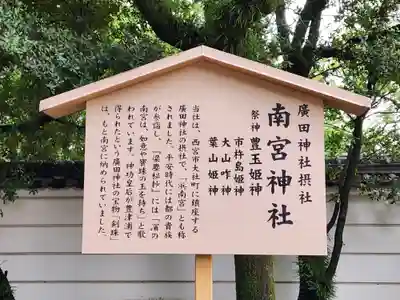 廣田神社摂社
南宮神社
祭神 豊玉姫神
市杵島姫神
大山咋神
葉山姫神
当社は、西宮市大社町に鎮座する
廣田神社の摂社で、「浜南宮」とも称
されました。平安時代には都の貴族
が参詣し、「梁塵秘抄」には「濱の
南宮は、如意や寶珠の玉を持ち」と歌
われています。神功皇后が豊津浦で
得られたという廣田神社の宝物「剣珠」
は、もと南宮に納められていました。